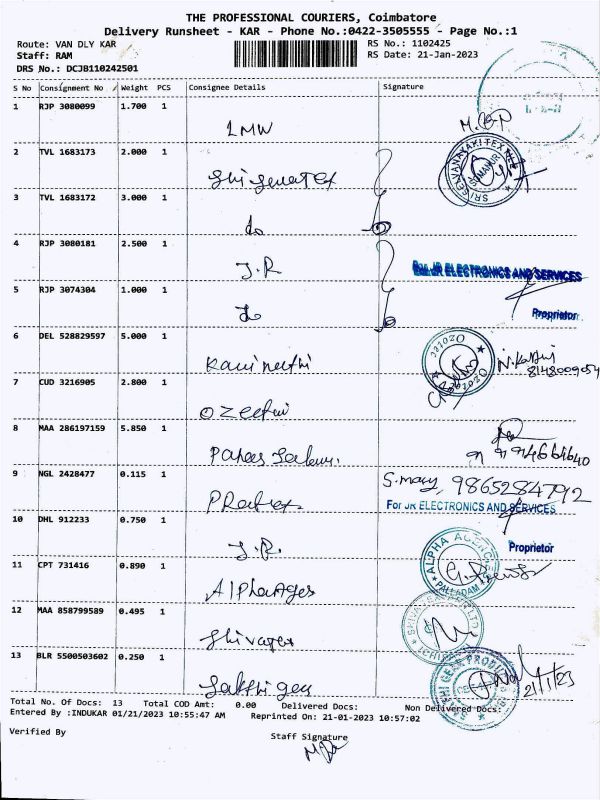 THE PROFESSIONAL COURIERS, Coimbatore
Delivery Runsheet - KAR - Phone No.:0422-3505555 - Page No.:1
Route: VAN DLY KAR RS No.: 1102425
Staff: RAM RS Date: 21-Jan-2023
DRS No.: DCJB110242501
S No Consignment No Weight PCS Consignee Details Signature
1 RJP 3080099 1.700 1
LMW
2 TVL 1683173 2.000 1
SRI SENVANAYAKI TEXTILE
3 TVL 1683172 3.000 1
do
4 RJP 3080181 2.500 1
J.R For JR ELECTRONICS AND SERVICES
5 RJP 3074304 1.000 1
do Proprietor
6 DEL 528829597 5.000 1
8148009054
7 CUD 3216905 2.800 1
8 MAA 286197159 5.850 1
9 NGL 2428477 0.115 1 S. mary, 9865284792
For JR ELECTRONICS AND SERVICES
10 DHL 912233 0.750 1
J.R. Proprietor
11 CPT 731416 0.890 1 ALPHA AGENCIES PALLADAM
Alpha Ages
12 MAA 858799589 0.495 1
13 BLR 5500503602 0.250 1
21/1/23
Total No. Of Docs: 13 Total COD Amt: 0.00 Delivered Docs: Non Delivered Docs:
Entered By :INDUKAR 01/21/2023 10:55:47 AM Reprinted On: 21-01-2023 10:57:02
Verified By Staff Signature